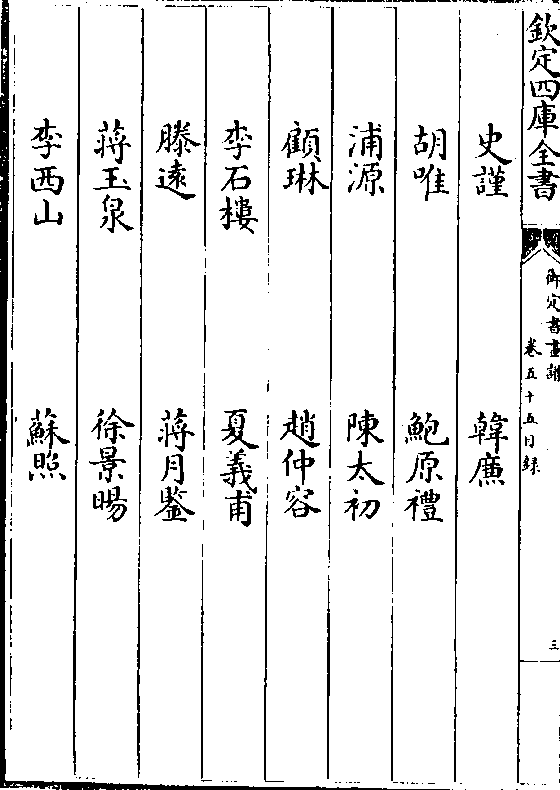 欽定四庫全書
御定書畫譜
卷五十五目録
三
史謹 韓㢘
胡唯 鮑原禮
浦源 陳太初
顧琳 趙仲容
李石樓 夏義甫
滕遠 蔣月鑒
蔣玉泉 徐景暘
李西山 蘇照